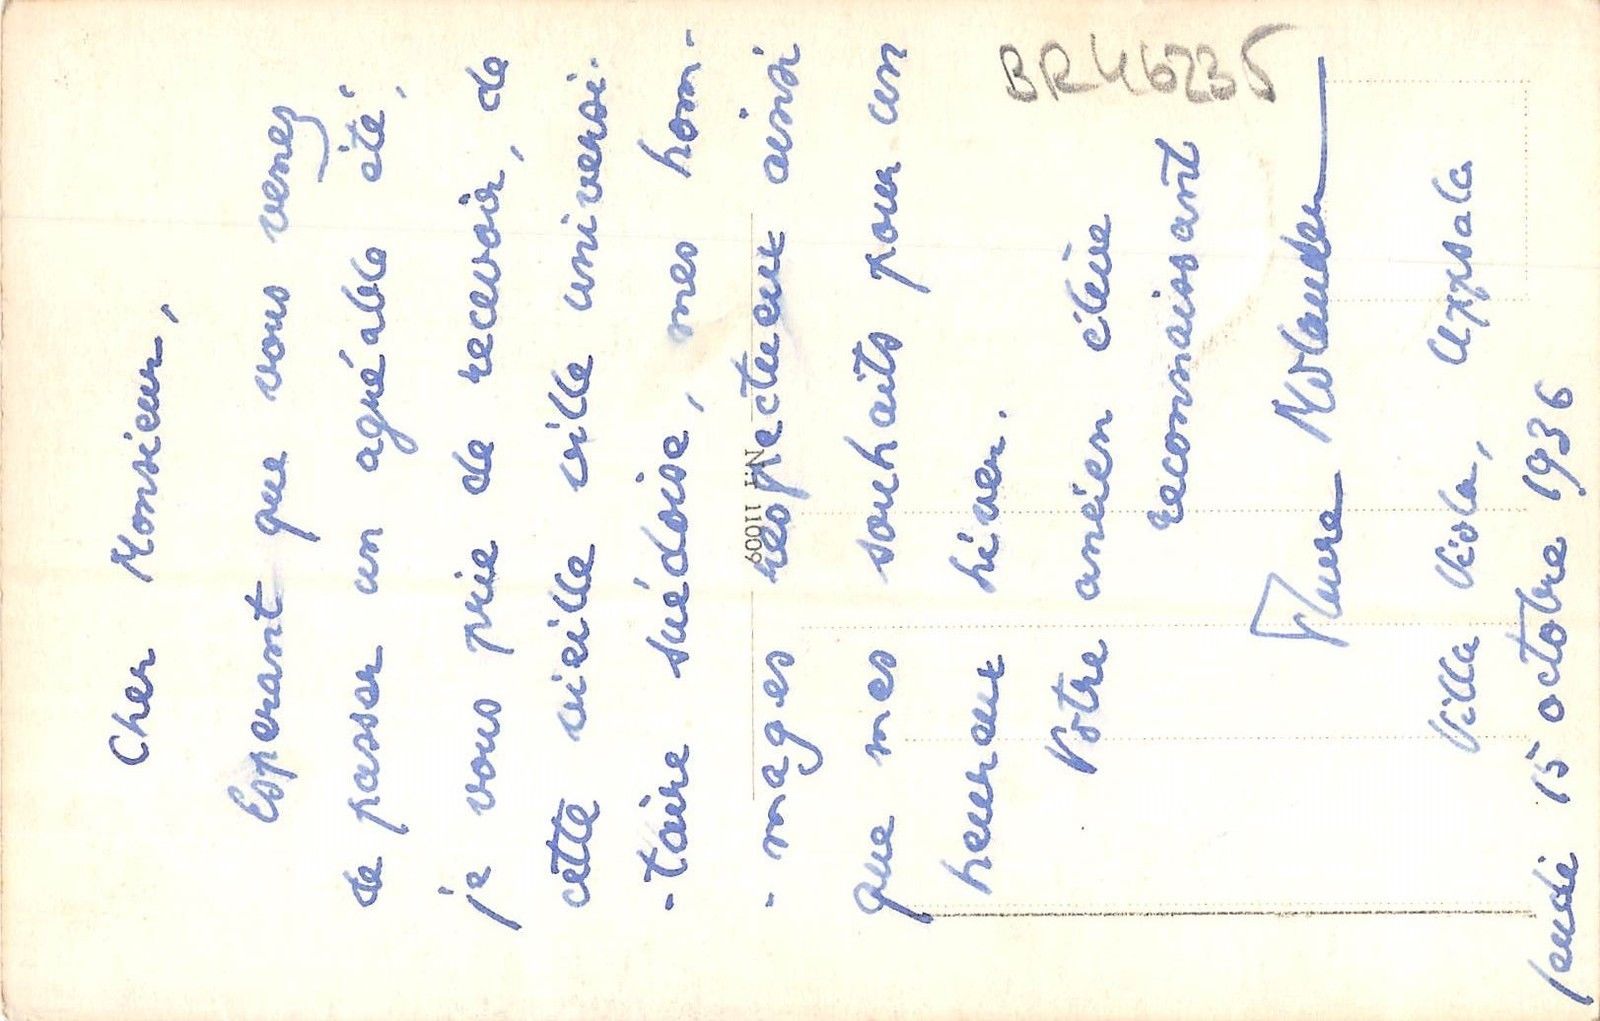 Cher Monsieur,
Esperant que vous venez
de passer un agréable été,
je vous prie de recevoir, de
cette vieille ville universi-
-taire suédoise, mes hom-
-mages respectueux ainsi
que mes souhaits pour un
heureux hiver.
Votre ancien élève
reconnaissant
Molander
Villa Viola, Uppsala
jeudi 15 octobre 1936
BR46235
N:r 11009